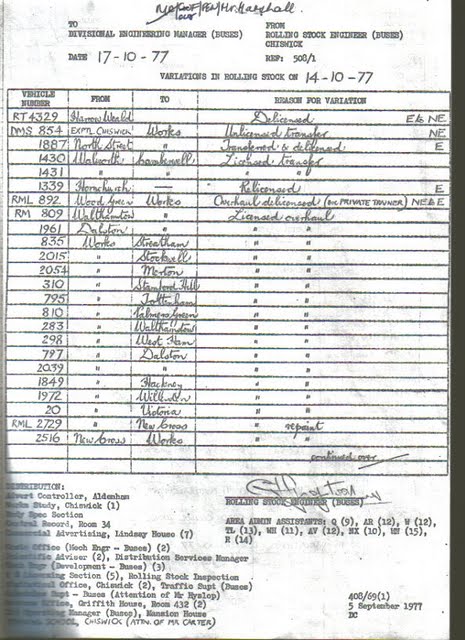 Mr Marshall
TO FROM
DIVISIONAL ENGINEERING MANAGER (BUSES) ROLLING STOCK ENGINEER (BUSES)
CHISWICK
DATE 17-10-77 REF: 508/1
VARIATIONS IN ROLLING STOCK ON 14-10-77
VEHICLE NUMBER FROM TO REASON FOR VARIATION
RT 4329 Harrow Weald Delicensed E & NE
DMS 854 EXPTL CHISWICK Works Unlicensed transfer NE
1887 North Street " Transferred & delicensed E
1430 Walworth Camberwell Licensed transfer
1431 " " " "
1339 Hornchurch — Relicensed E
RML 892 Wood Green Works Overhaul delicensed (on PRIVATE TANNER) NE & E
RM 809 Walthamstow " Licensed overhaul
1961 Dalston " " "
835 Works Streatham " "
2015 " Stockwell " "
2054 " Merton " "
310 " Stamford Hill " "
795 " Tottenham " "
810 " Palmers Green " "
283 " Walthamstow " "
298 " West Ham " "
797 " Dalston " "
2039 " " " "
1849 " Hackney " "
1972 " Willesden " "
20 " Victoria " "
RML 2729 " New Cross " repaint
2516 New Cross Works " "
continued over
DISTRIBUTION:
Advert Controller, Aldenham
Works Study, Chiswick (1)
Body Spec Section
Central Record, Room 34
Commercial Advertising, Lindsay House (7)
Office (Mech Engr - Buses) (2)
Scientific Adviser (2), Distribution Services Manager
Engr (Development - Buses) (3)
Licensing Section (5), Rolling Stock Inspection
Office, Chiswick (2), Traffic Supt (Buses)
Supt - Buses (Attention of Mr Hyslop)
Office, Griffith House, Room 432 (2)
Operating Manager (Buses), Mansion House
SCHOOL, CHISWICK (ATTN. OF MR CARTER)
ROLLING STOCK ENGINEER (BUSES)
AREA ADMIN ASSISTANTS: Q (9), AR (12), W (12),
TL (13), WH (11), AV (12), HX (10), UH (15),
R (14)
408/69(1)
5 September 1977
DC